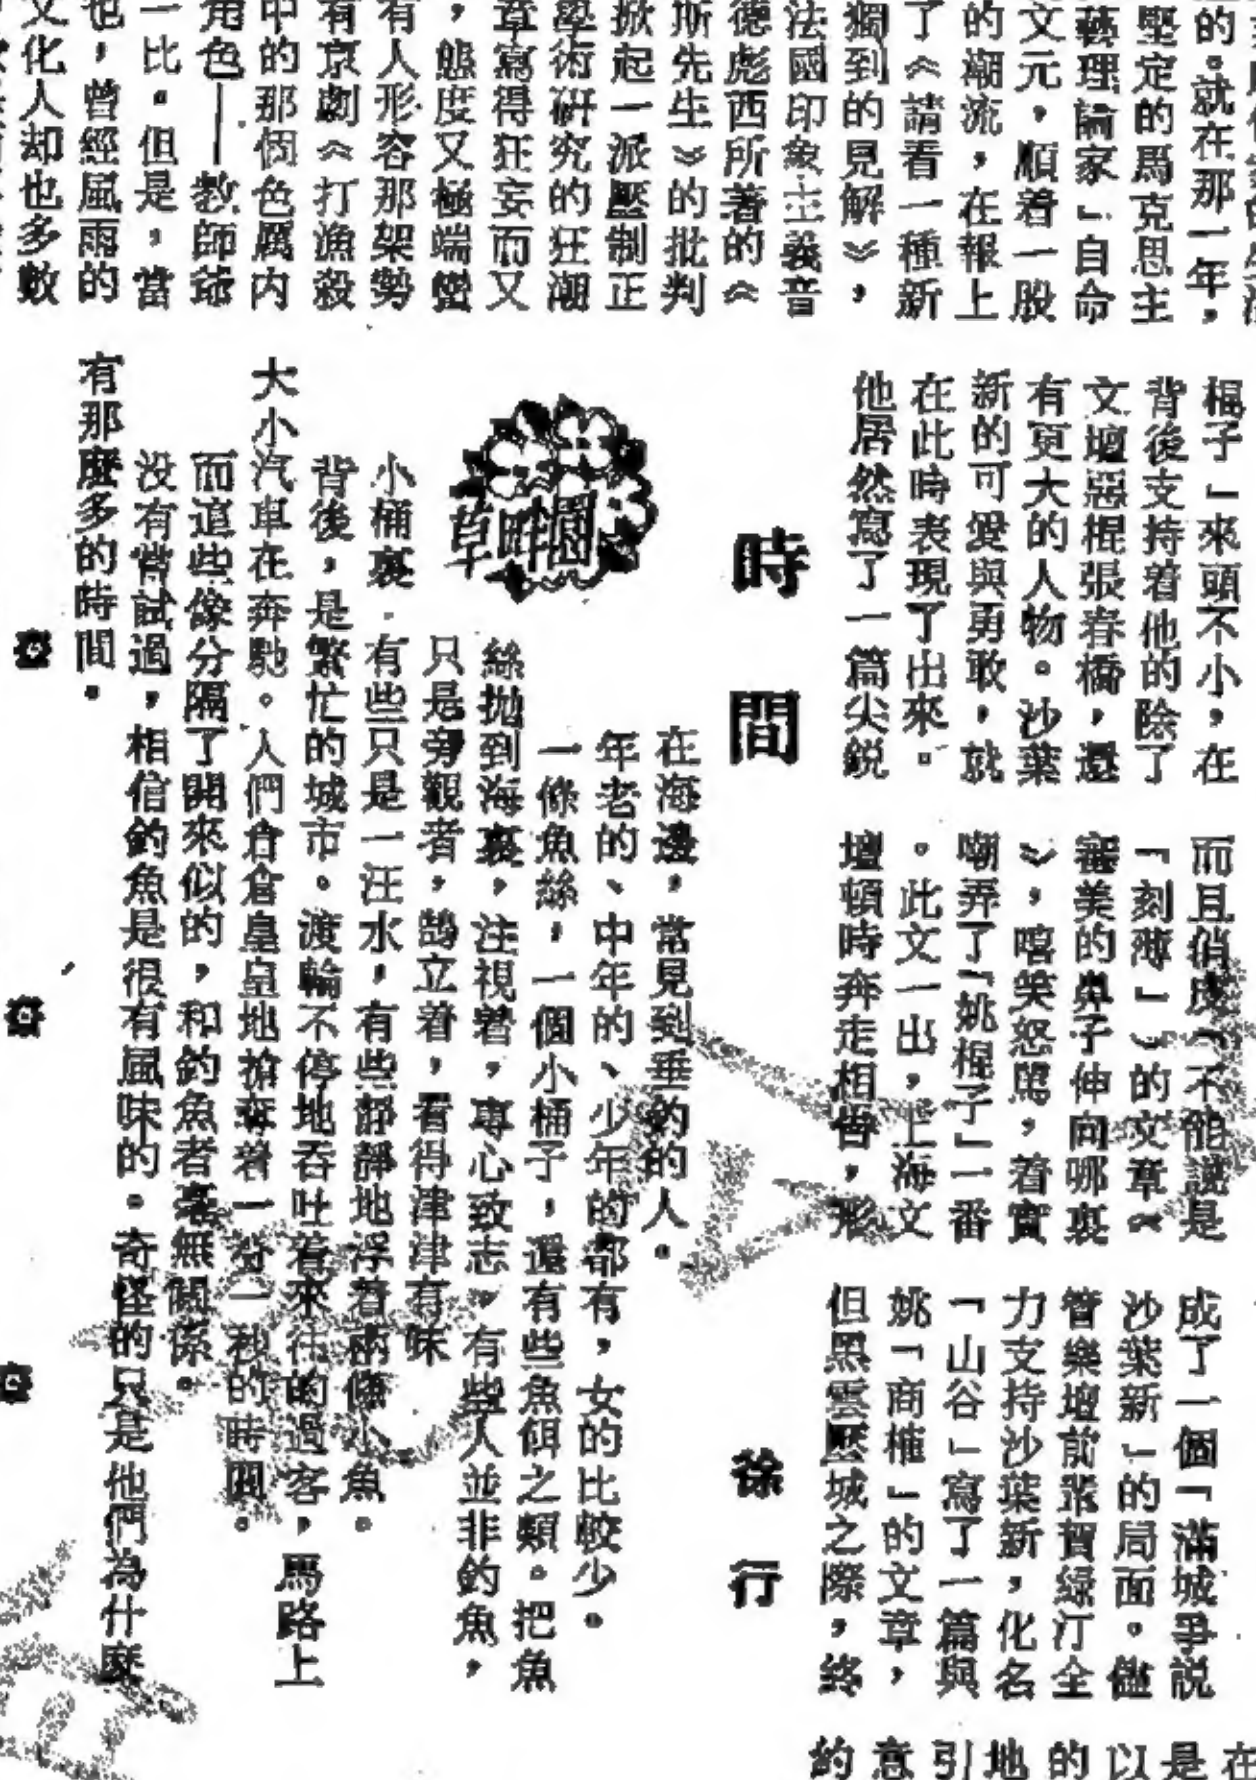 的。就在那一年，
堅定的馬克思主
藝理論家」自命
文元，順着一股
的潮流，在報上
了《請看一種新
獨到的見解》，
法國印象主義音
德彪西所著的《
斯先生》的批判
掀起一派壓制正
學術研究的狂潮
章寫得狂妄而又
，態度又極端蠻
有人形容那架勢
有京劇《打漁殺
中的那個色厲内
角色——教師爺
一比。但是，當
也，曾經風雨的
文化人却也多數
棍子」來頭不小，在
背後支持着他的除了
文壇惡棍張春橋，還
有更大的人物。沙葉
新的可愛與勇敢，就
在此時表現了出來。
他居然寫了一篇尖鋭
而且俏皮（不能説是
「刻薄」）的文章《
審美的鼻子伸向哪裏
》，嘻笑怒罵，着實
嘲弄了「姚棍子」一番
。此文一出，上海文
壇頓時奔走相告，形
成了一個「滿城爭説
沙葉新」的局面。儘
管樂壇前輩賀綠汀全
力支持沙葉新，化名
「山谷」寫了一篇與
姚「商榷」的文章，
但黑雲壓城之際，終
在
是
以
的
地
引
意
約
時間
徐行
草畔園
在海邊，常見到垂釣的人。
年老的、中年的、少年的都有，女的比較少。
一條魚絲，一個小桶子，還有些魚餌之類。把魚
絲拋到海裏，注視着，專心致志，有些人並非釣魚，
只是旁觀者，鵠立着，看得津津有味
小桶裏．有些只是一汪水，有些靜靜地浮着兩條小魚。
背後，是繁忙的城市。渡輪不停地吞吐着來往的過客，馬路上
大小汽車在奔馳。人們倉倉皇皇地搶奪着一分一秒的時間。
而這些像分隔了開來似的，和釣魚者毫無關係。
没有嘗試過，相信釣魚是很有風味的。奇怪的只是他們為什麽
有那麽多的時間。